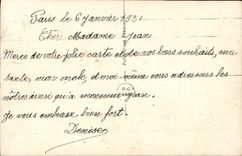 Paris le 6 janvier 1921
Chère Madame Jean
Merci de votre jolie carte et de vos bons souhaits, ma
tante, mon oncle, et moi-même vous adressons les
nôtres ainsi qu'à monsieur Jean.
Je vous embrasse bien fort.
Denise